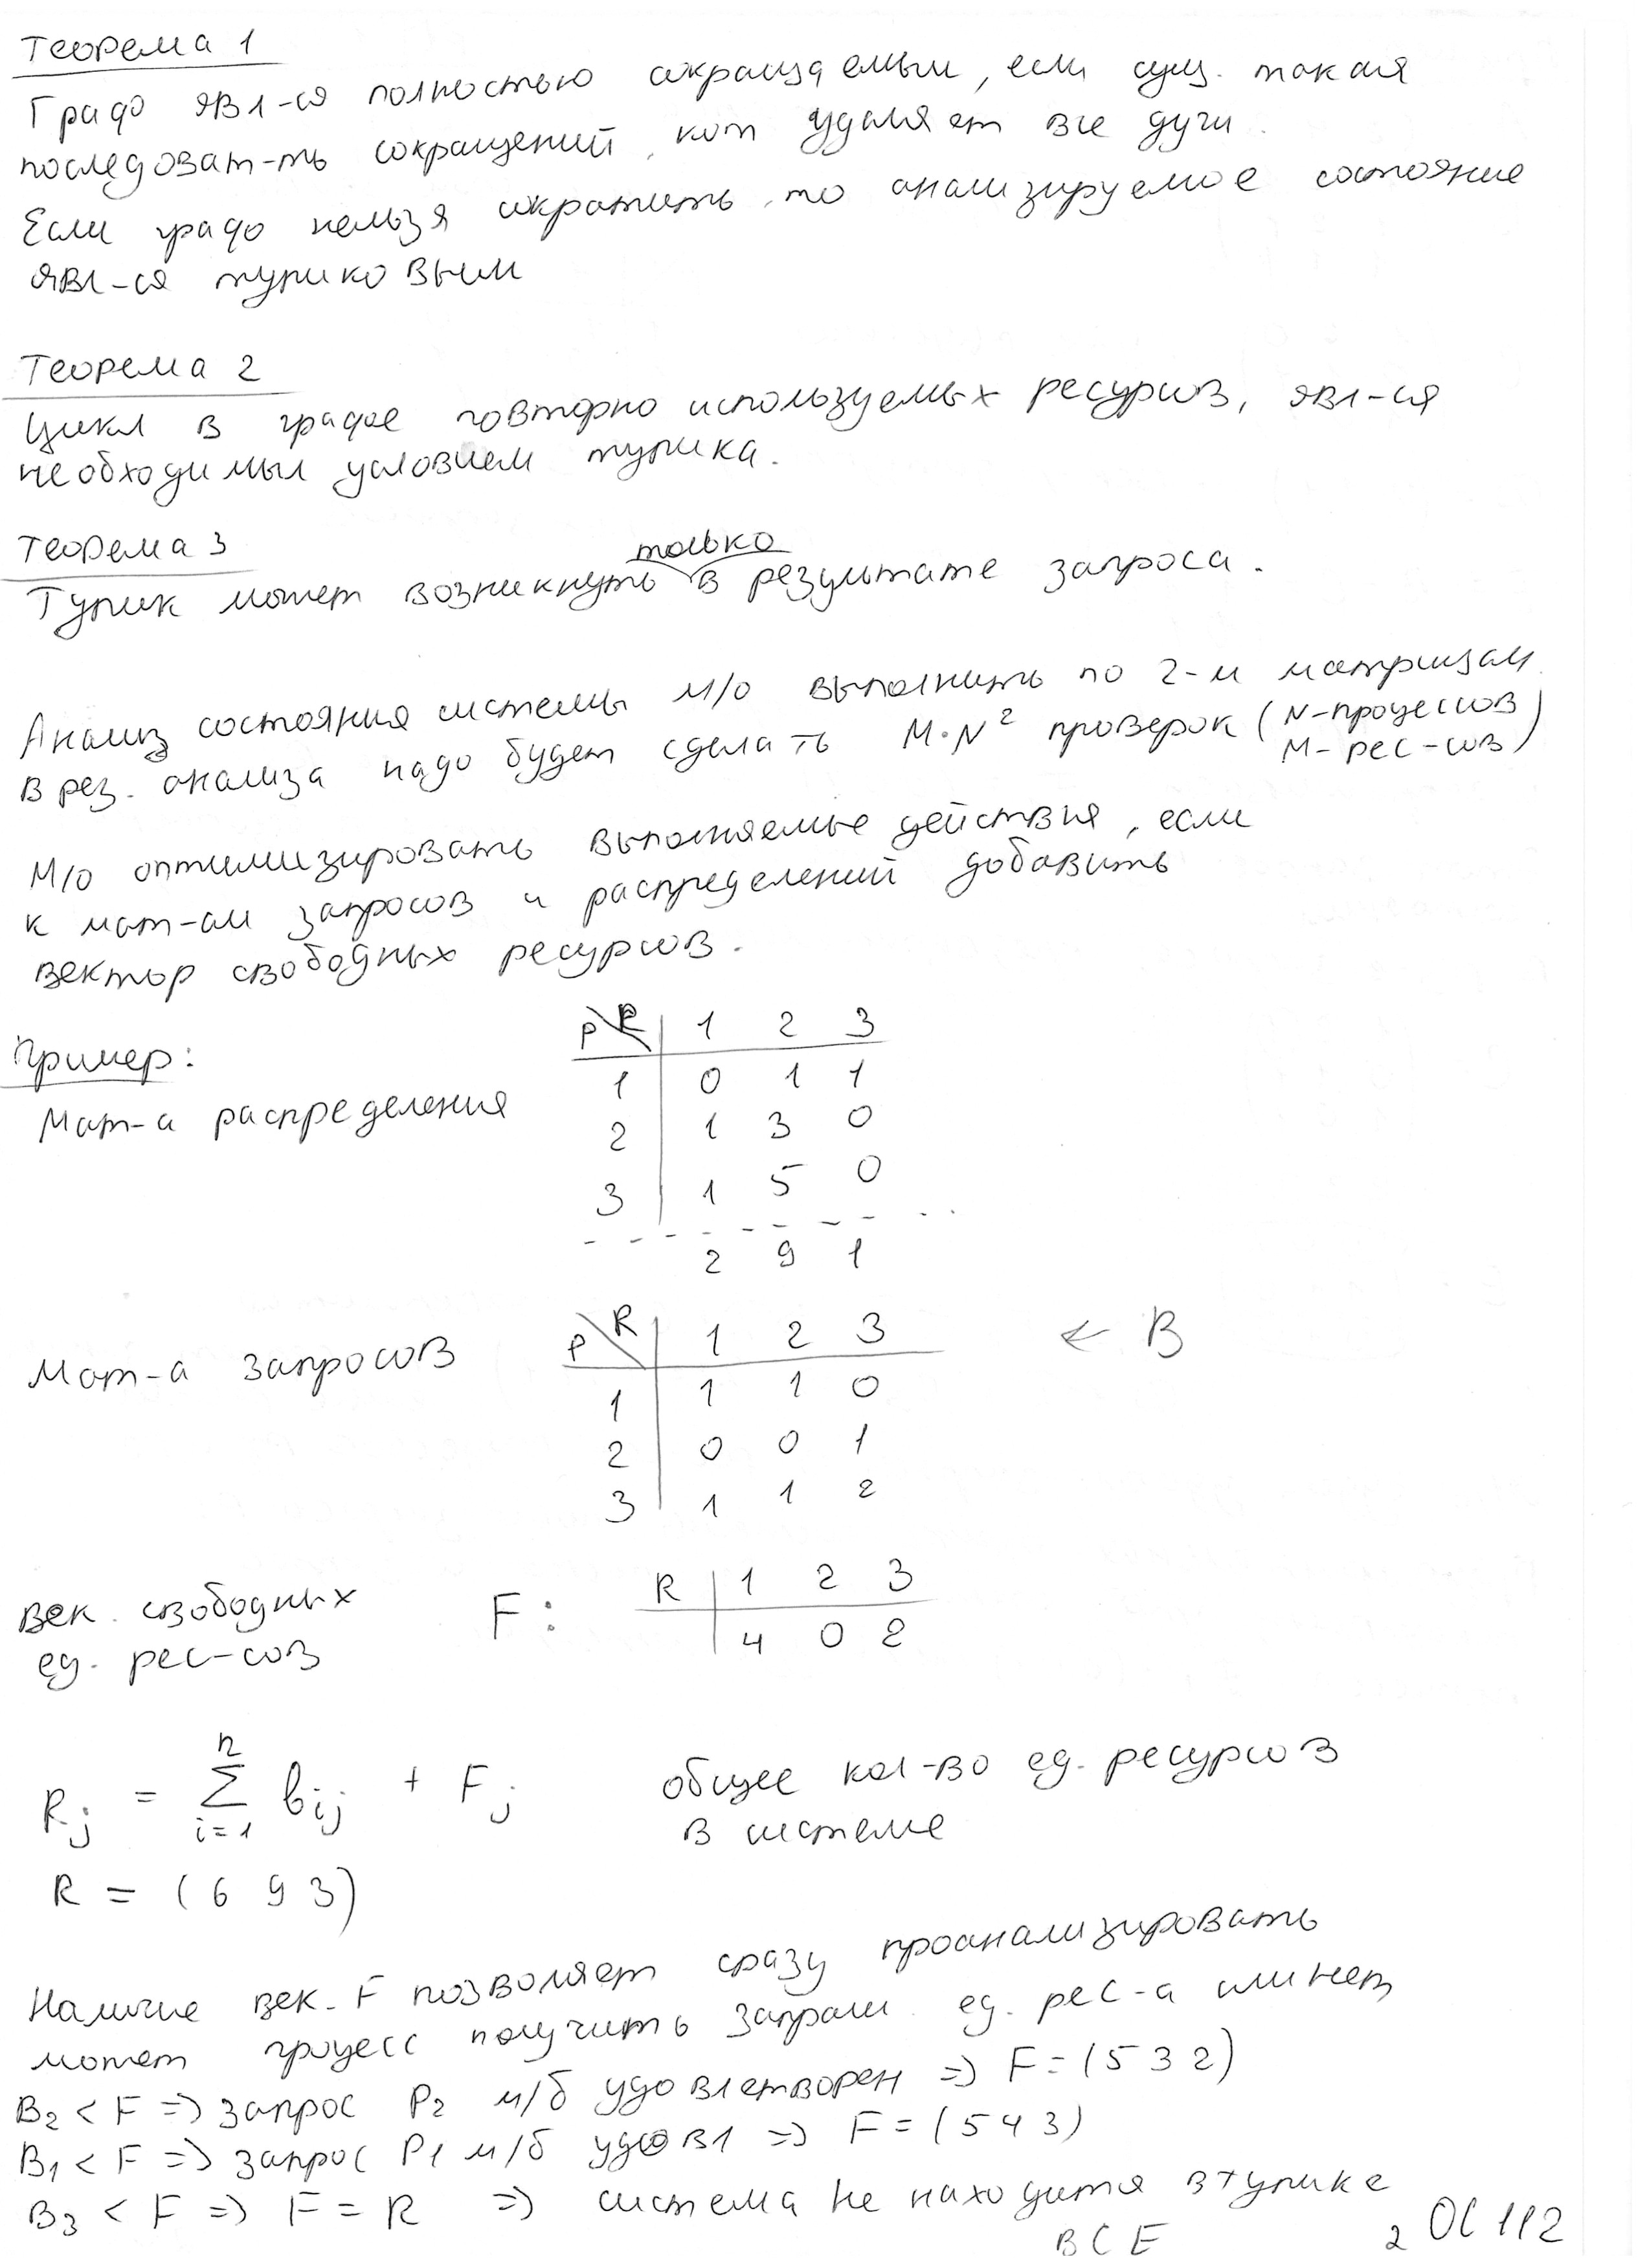 Теорема 1
Граф явл-ся полностью сокращаемым, если сущ. такая
последоват-ть сокращений, кот удаляет все дуги.
Если граф нельзя сократить, то анализируемое состояние
явл-ся тупиковым
Теорема 2
Цикл в графе повторно используемых ресурсов, явл-ся
необходимым условием тупика.
Теорема 3
только
Тупик может возникнуть в результате запроса.
Анализ состояния системы м/о выполнить по 2-м матрицам
В рез. анализа надо будет сделать M·N² проверок (N-процессов
M-рес-сов)
М/о оптимизировать выполняемые действия, если
к мат-ам запросов и распределений добавить
вектор свободных ресурсов.
Пример:
P\R 1 2 3
1 0 1 1
Мат-а распределения
2 1 3 0
3 1 5 0
2 9 1
Мат-а запросов
P\R 1 2 3 ← B
1 1 1 0
2 0 0 1
3 1 1 2
век. свободных
ед. рес-сов
F: R 1 2 3
4 0 2
Rj = n Σ i=1 bij + Fj общее кол-во ед. ресурсов
в системе
R = (6 9 3)
Наличие век. F позволяет сразу проанализировать
может процесс получить запраш. ед. рес-а или нет
B2 < F => запрос P2 м/б удовлетворен => F = (5 3 2)
B1 < F => запрос P1 м/б удовл => F = (5 4 3)
B3 < F => F = R => система не находится в тупике
ВСЕ
2 ОС 112